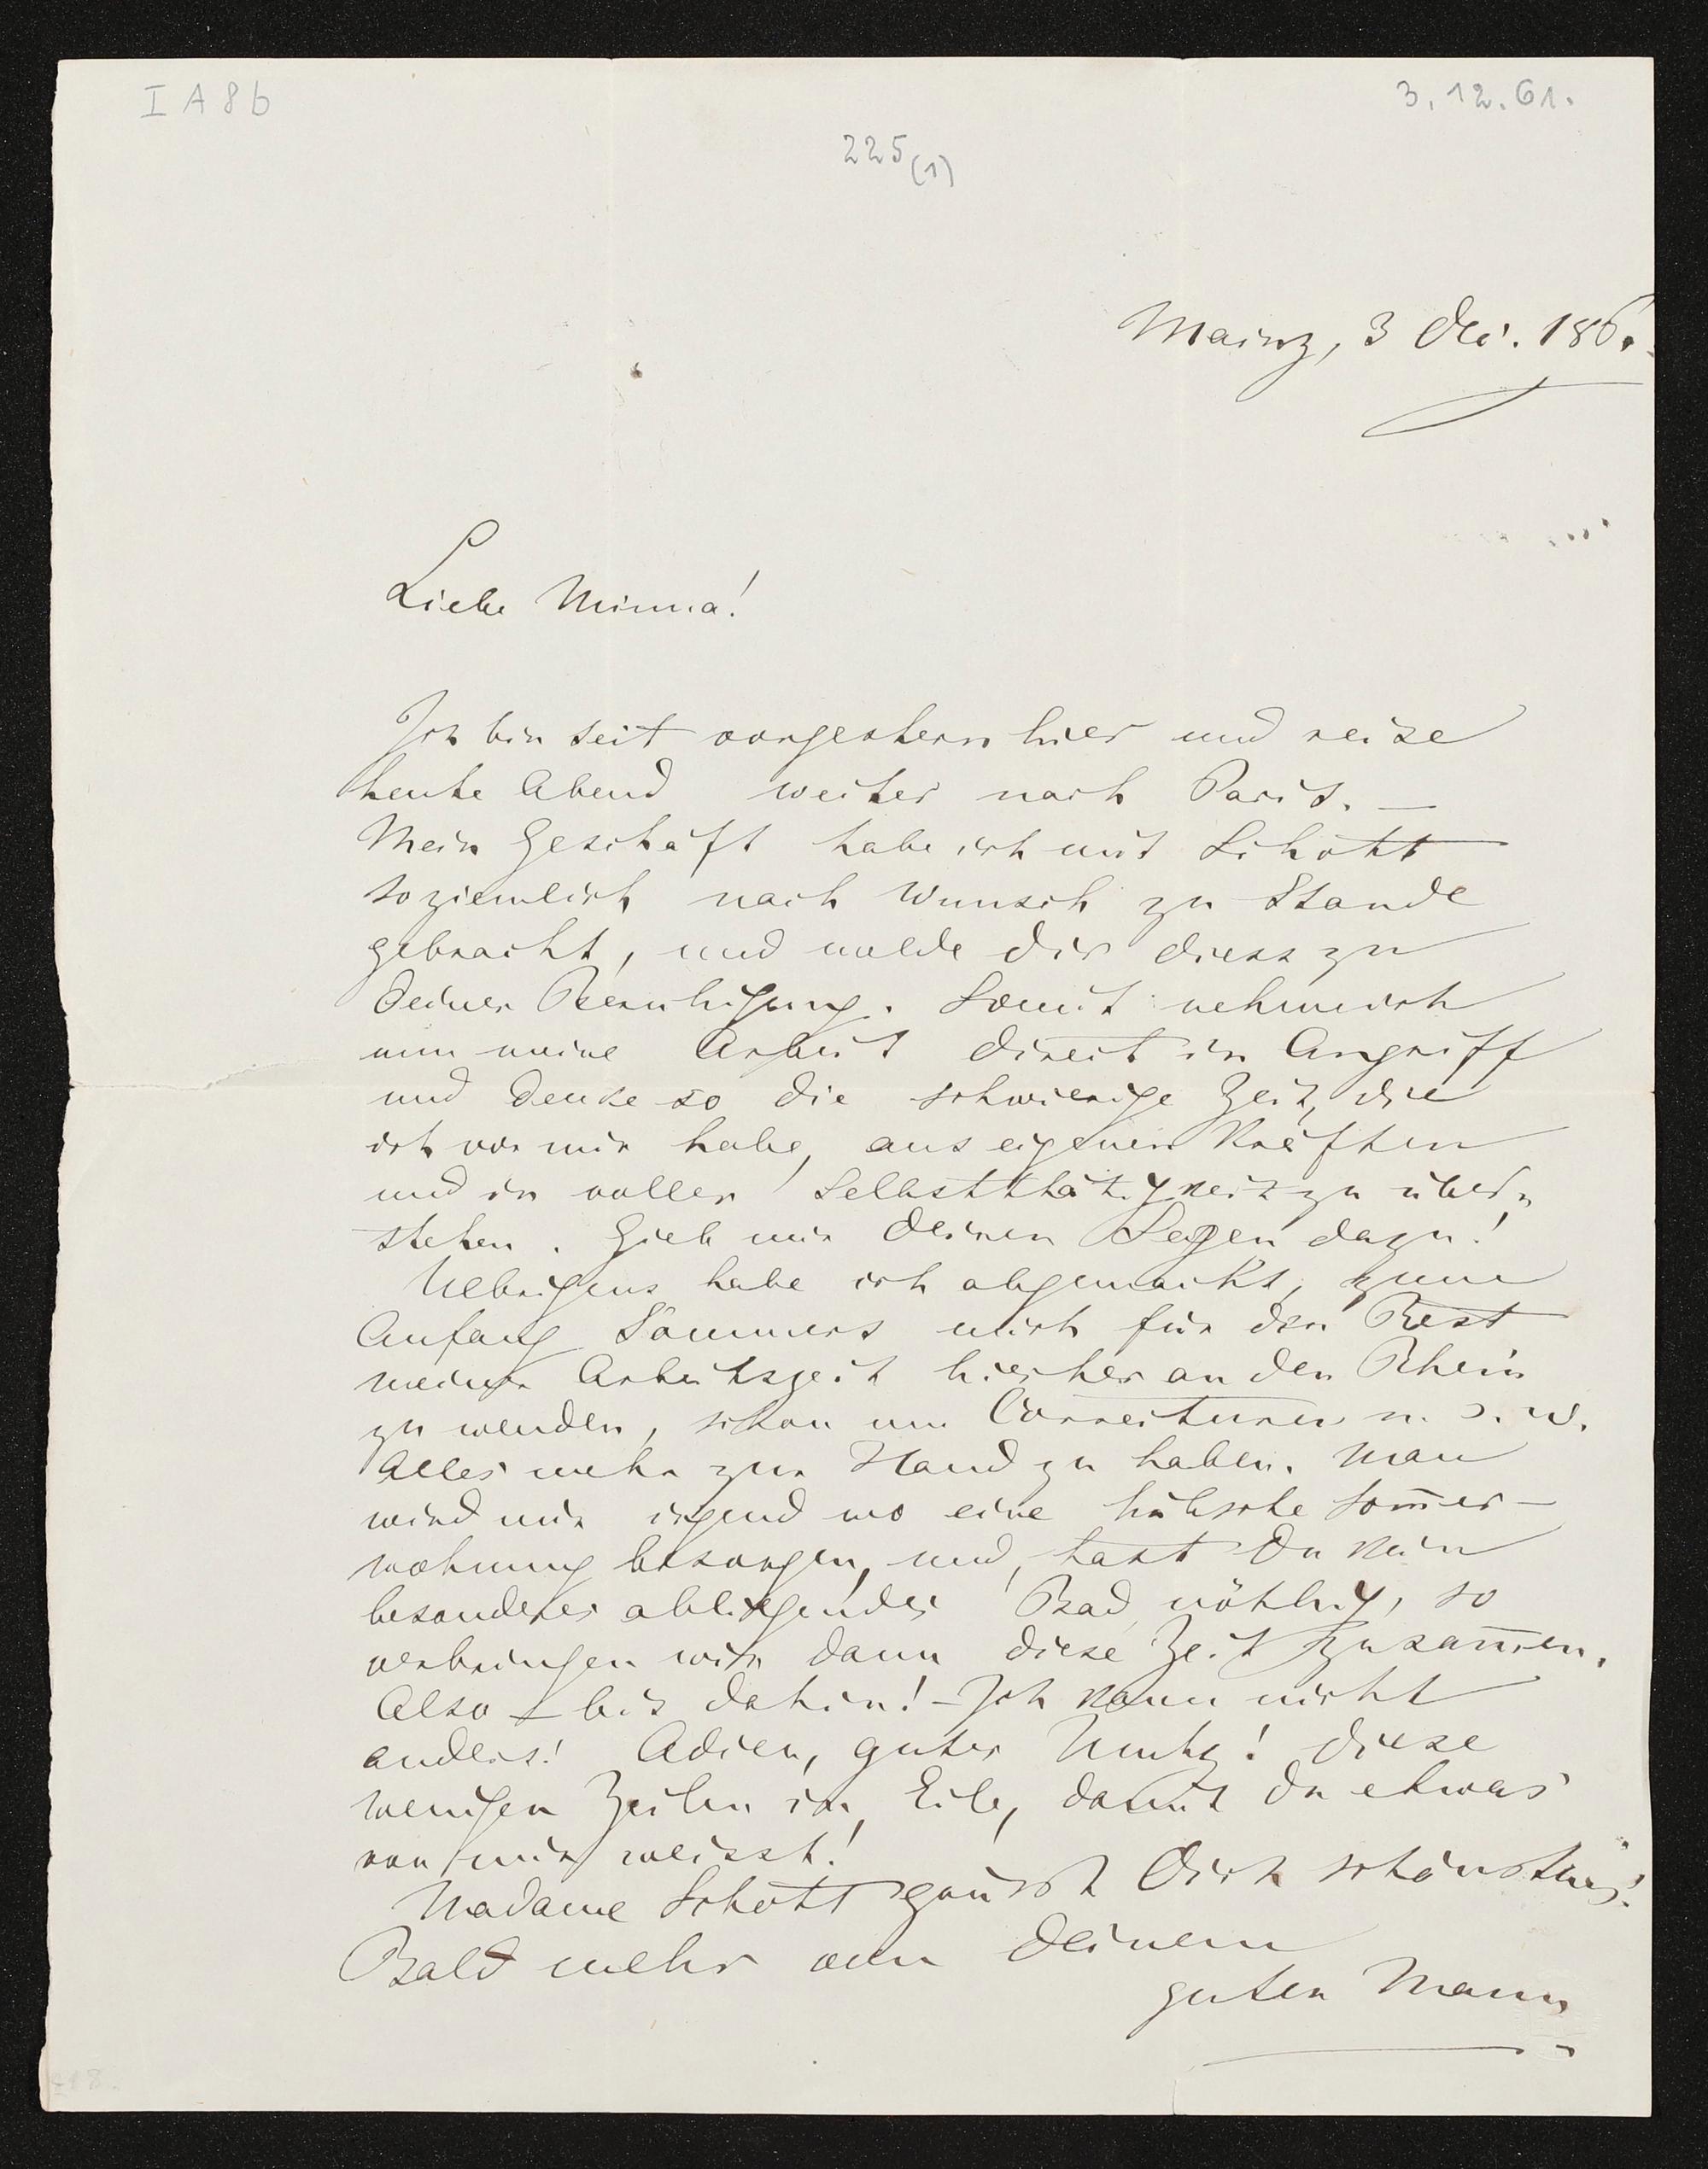 I A 8 b
3. 12. 61.
225 (1)
Mainz, 3 Dec. 186
Liebe Minna!
Ich bin seit vorgestern hier und reise
heute Abend weiter nach Paris. —
Mein Geschäft habe ich mit Schott
so ziemlich nach Wunsch zu Stande
gebracht, und melde dir diess zu
deiner Beruhigung. Somit nehme ich
nun meine Arbeit direct in Angriff
und denke so die schwierige Zeit, die
ich vor mir habe, aus eigenen Kräften
und in voller Selbstthätigkeit zu über-
stehen. Gieb mir deinen Segen dazu!
Uebrigens habe ich abgemacht, zum
Anfang Sommers mich für den Rest
meiner Arbeitszeit hierher an den Rhein
zu wenden, schon um Correcturen u. s. w.
Alles mehr zur Hand zu haben. Man
wird mir irgend wo eine hübsche Som̅er-
wohnung besorgen, und, hast Du kein
besonderes abliegendes Bad nöthig, so
verbringen wir dann diese Zeit zusam̅en.
Also — bis dahin! – Ich kann nicht
anders! Adieu, guter Mutz! Diese
wenigen Zeilen in Eile, damit du etwas
von mir weisst!
Madame Schott grüsst Dich schönstens!
Bald mehr von Deinem
guten Mann